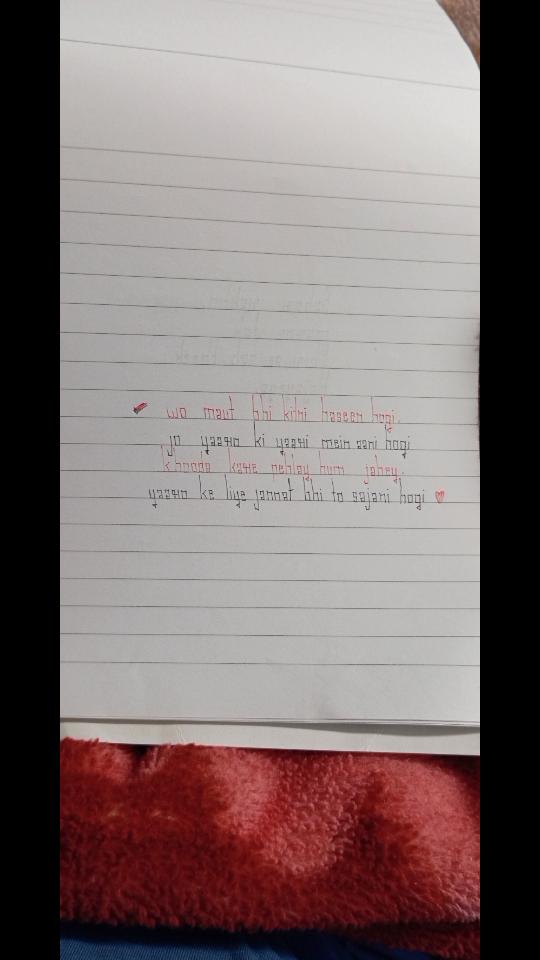 wo maut bhi kithi haseen hogi.
jo yaaro ki yaari mein aani hogi
khooda kare pehlay hum jahey.
yaaro ke liye jannat bhi to sajani hogi